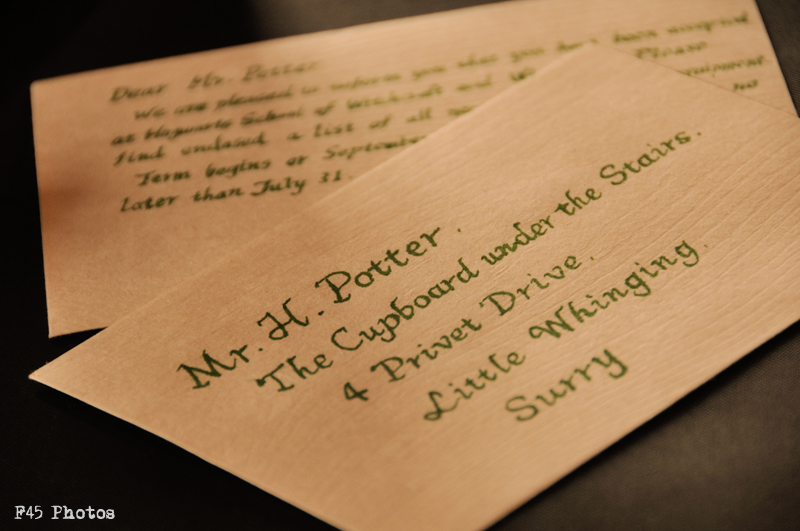 Dear Mr. Potter
We are pleased to inform you that you have been accepted
at Hogwarts School of Witchcraft and Please
find enclosed a list of all equipment.
Term begins on September no
later than July 31.
Mr. H. Potter.
The Cupboard under the Stairs.
4 Privet Drive.
Little Whinging.
Surry
F45 Photos